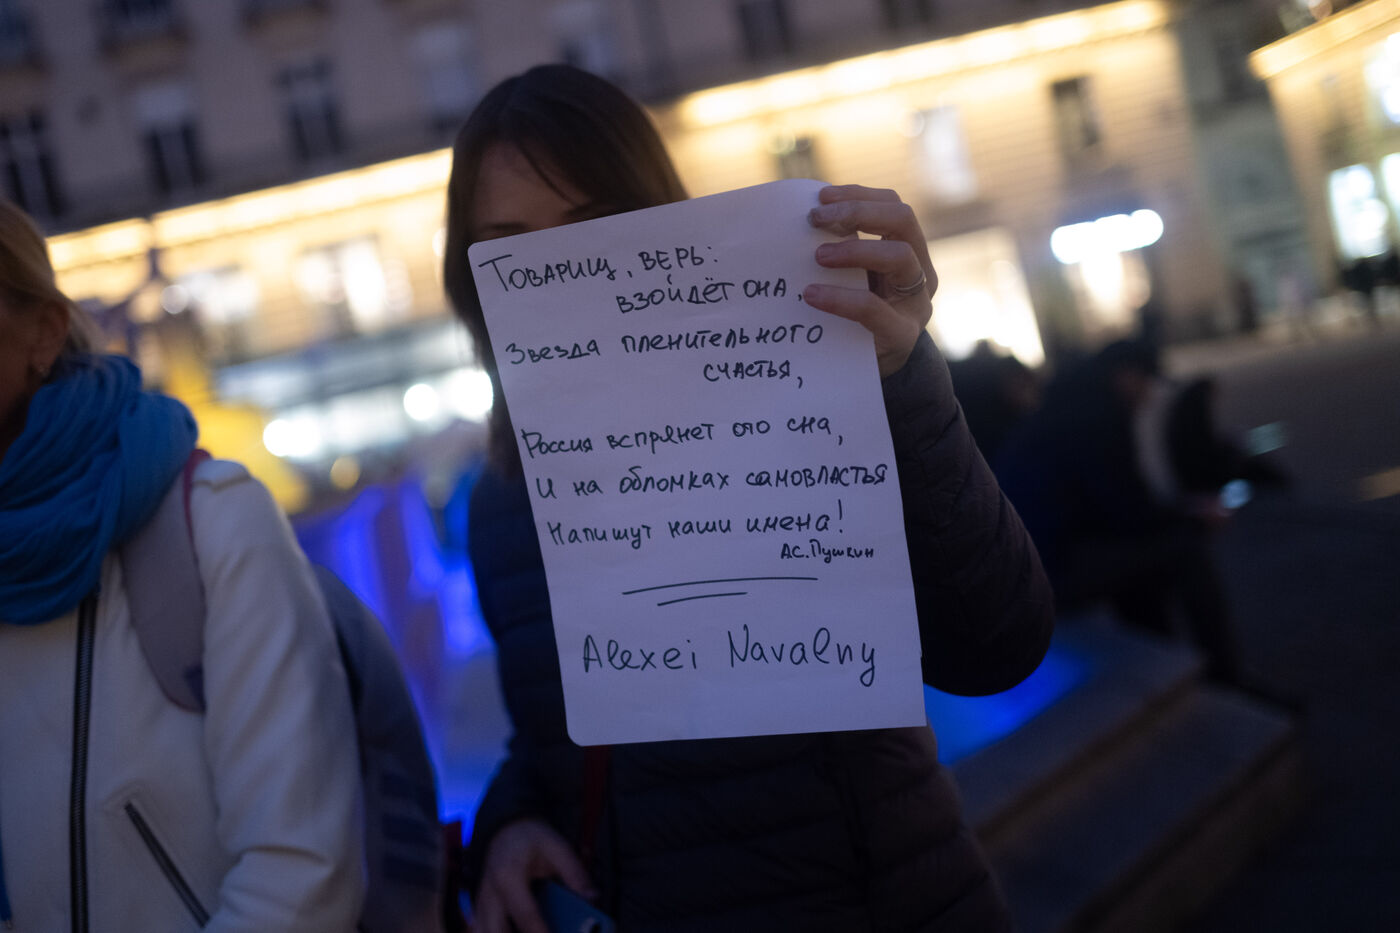 Товарищ, верь:
взойдёт она,
Звезда пленительного
счастья,
Россия вспрянет ото сна,
И на обломках самовластья
Напишут наши имена!
А.С.Пушкин
Alexei Navalny